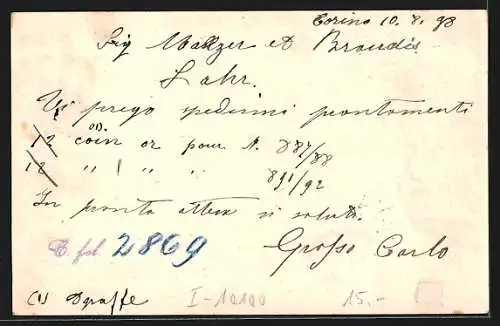 Torino 10. 8. 93
Sig Maelzer et Brandis
Lahr.
Vi prego spedirmi prontamente
12 coin or pour N. 887/88
18 " " " " 891/92
In pronta attesa vi saluto.
Grosso Carlo
2869
Dgraffe I-10100 15.-